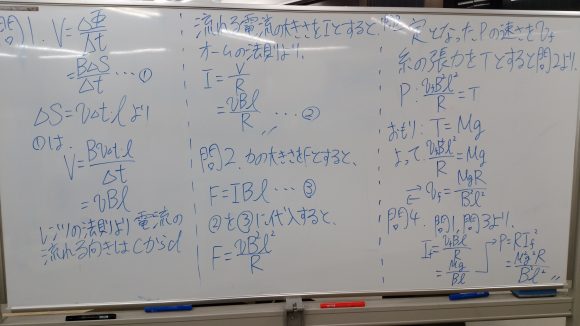 問1. V=ΔΦ/Δt
=BΔS/Δt …①
ΔS=vΔt・lより
①は、
V=BvΔt・l/Δt
=vBl
レンツの法則より電流の
流れる向きはcからd
流れる電流の大きさをIとすると、
オームの法則より、
I=V/R
=vBl/R …②
問2. 力の大きさをFとすると、
F=IBl …③
②を③に代入すると、
F=vB²l²/R
定となったPの速さをvf
糸の張力をTとすると問2より、
P: vfB²l²/R=T
おもり: T=Mg
よって vfB²l²/R=Mg
vf=MgR/B²l²
問4. 問1,問3より、
If=vfBl/R
=Mg/Bl
P=RIf²
=M²g²R/B²l²